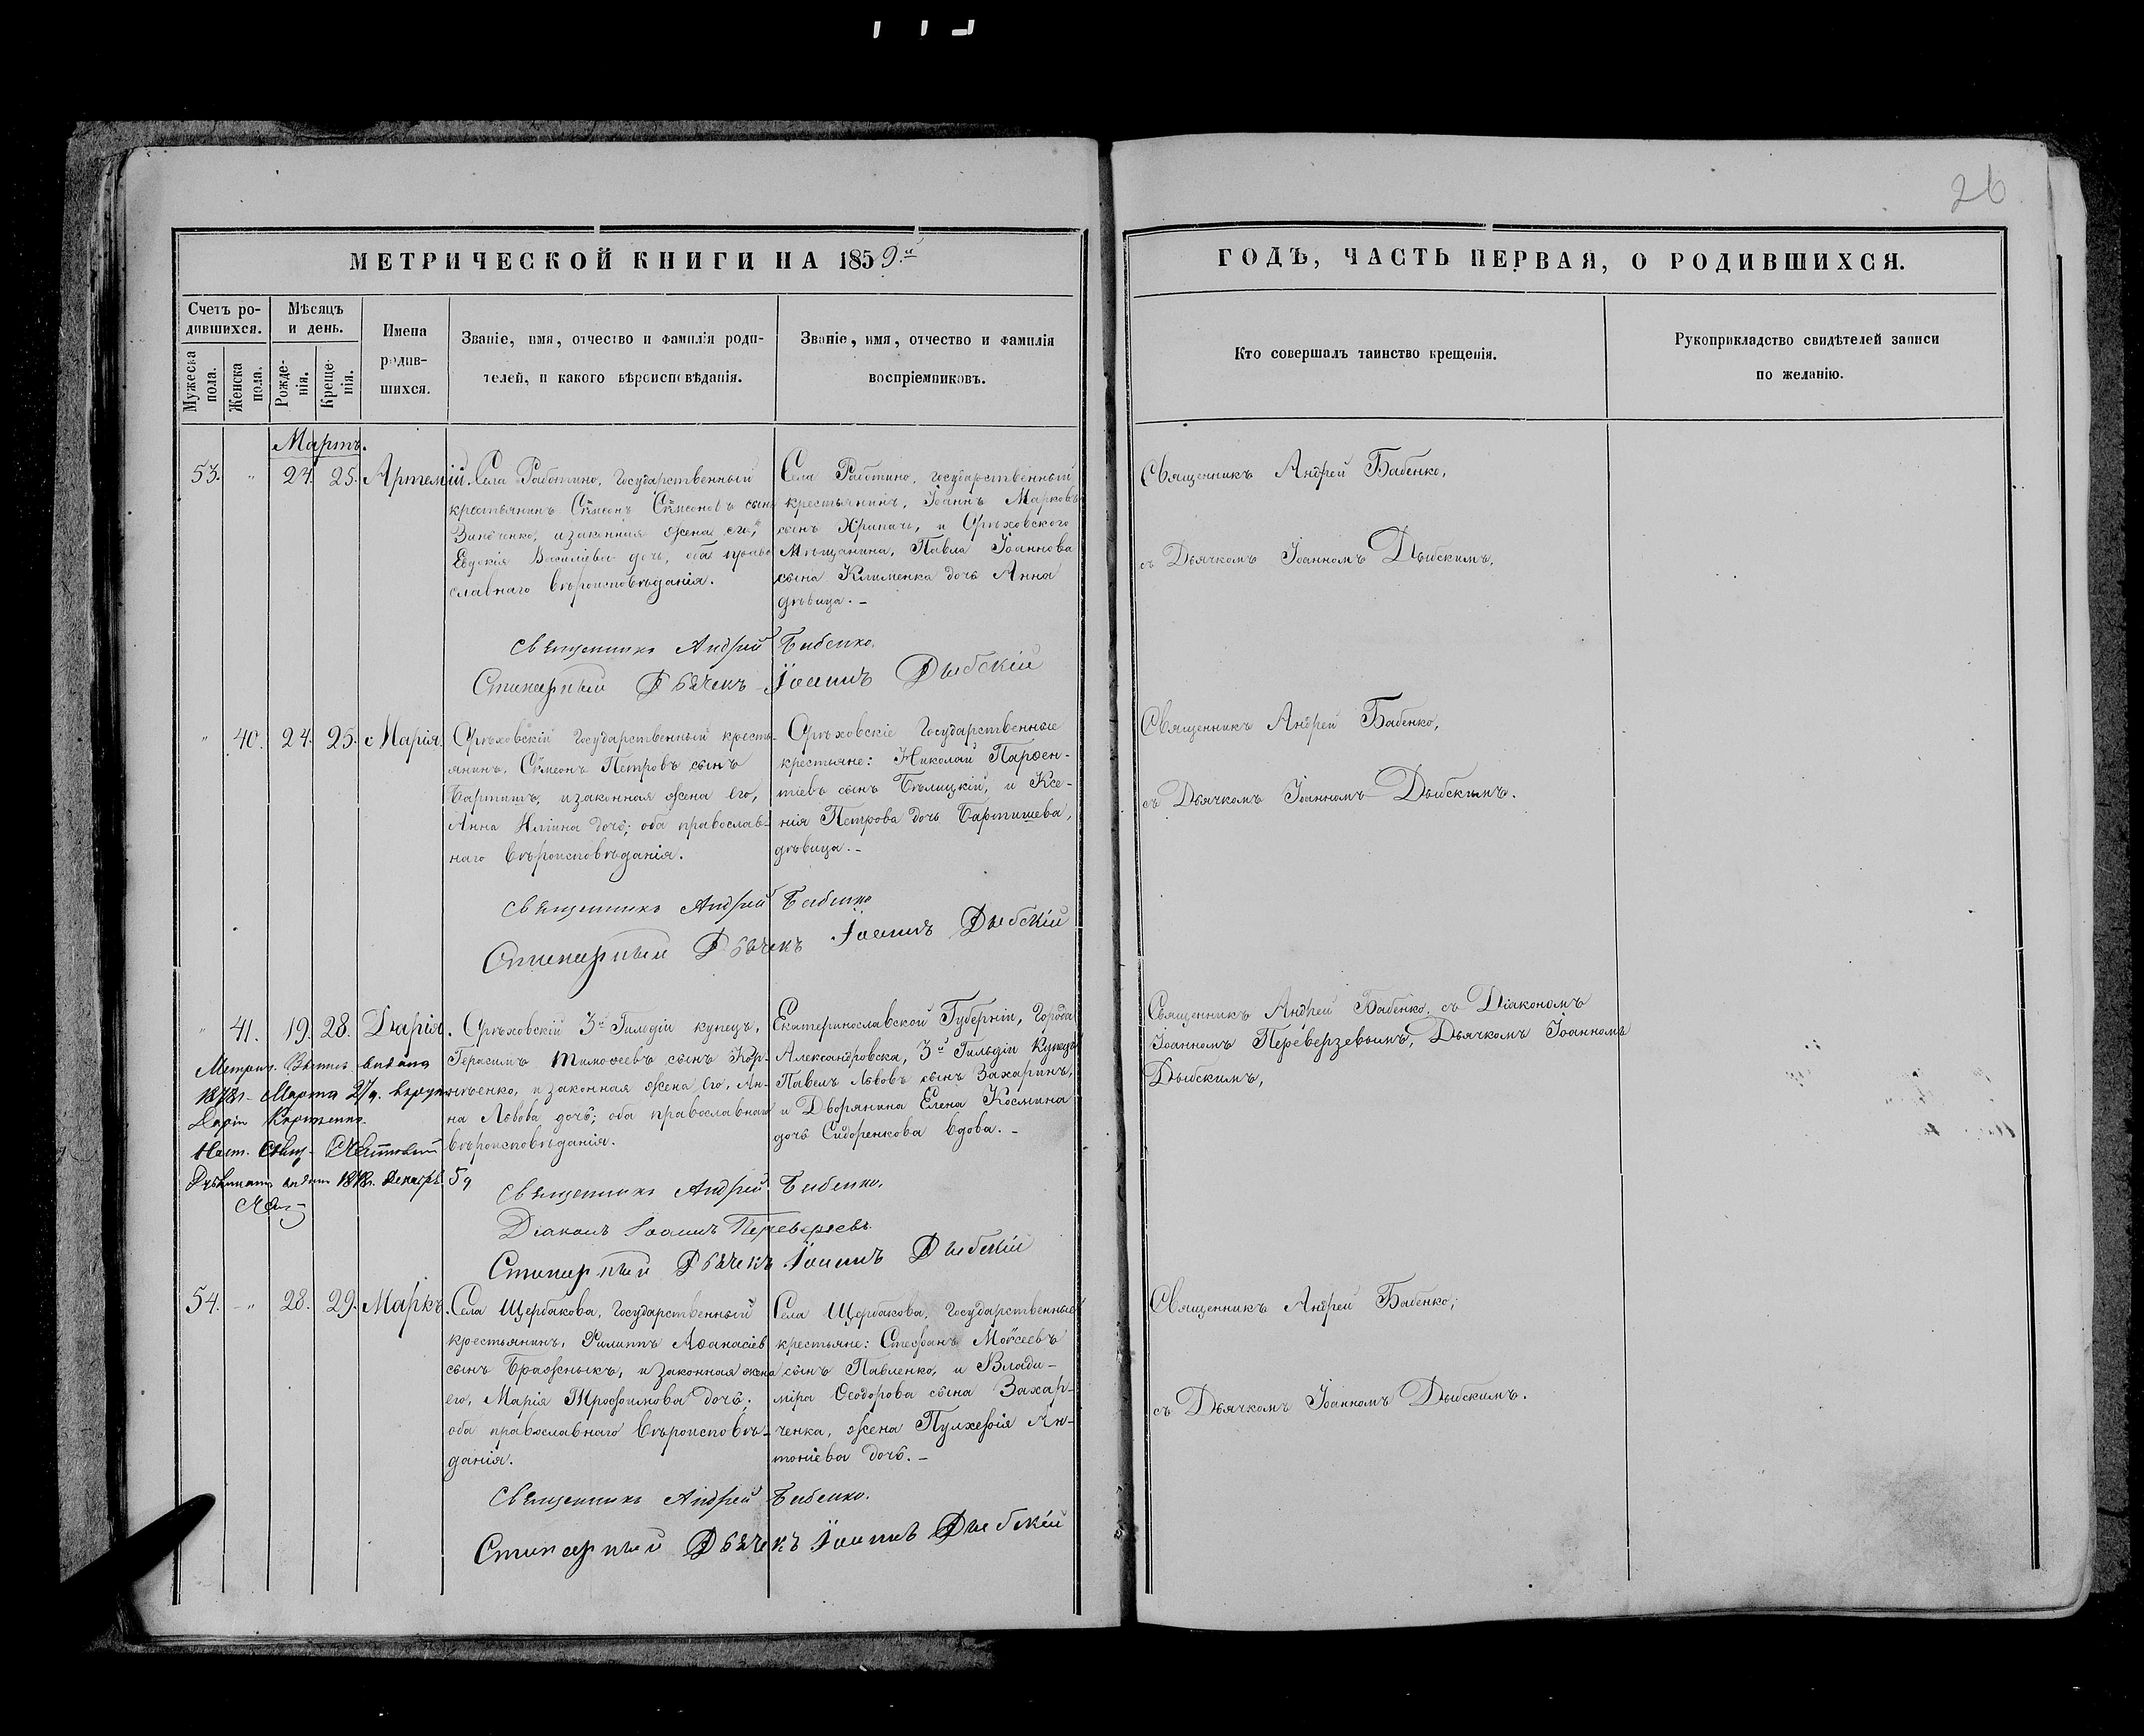 26
МЕТРИЧЕСКОЙ КНИГИ НА 1859.й
ГОДЪ, ЧАСТЬ ПЕРВАЯ, О РОДИВШИХСЯ.
Счетъ ро-
дившихся.
Мужеска пола.
Женска пола.
Мѣсяцъ
и день.
Рожде-
нія.
Креще-
нія.
Имена
родив-
шихся.
Званіе, имя, отчество и фамилія роди-
телей, и какого вѣроисповѣданія.
Званіе, имя, отчество и фамилія
воспріемниковъ.
Кто совершалъ таинство крещенія.
Рукоприкладство свидѣтелей записи
по желанію.
Мартъ.
53. " 24. 25. Артемій.
Села Работино, Государственный
крестьянинъ Сѵмеонъ Сѵмеоновъ сынъ
Зинченко, и законная жена его,
Евдокія Василіева дочь, оба право
славнаго вѣроисповѣданія.
Села Работино, государственный
крестьянинъ, Іоаннъ Марковъ
сынъ Хрипачь, и Орѣховского
Мѣщанина, Павла Іоаннова
сына Клименка дочь Анна
дѣвица. –
Священникъ Андрей Бабенко,
съ Дьячкомъ Іоанномъ Дыбскимъ.
Священникъ Андрей Бабенко.
Стихарный Дьячекъ Іоаннъ Дыбскій
" 40. 24. 25. Марія.
Орѣховскій Государственный кресть-
янинъ, Сѵмеонъ Петровъ сынъ
Бартишъ, и законная жена его,
Анна Иліина дочь; оба православ-
наго вѣроисповѣданія.
Орѣховскіе Государственные
крестьяне: Николай Парѳен-
тіевъ сынъ Бѣлицкій, и Ксе-
нія Петрова дочь Бартишева,
дѣвица. –
Священникъ Андрей Бабенко,
съ Дьячкомъ Іоанномъ Дыбскимъ.
Священникъ Андрей Бабенко
Стихарный Дьячекъ Іоаннъ Дыбскій
" 41. 19. 28. Дарія.
Орѣховскій 3й Гильдіи купецъ,
Герасимъ Тимоѳеевъ сынъ Кор-
нѣенко, и законная жена его, Ан-
на Львова дочь; оба православнаго
вѣроисповѣданія.
Екатеринославской Губерніи, Города
Александровска, 3й Гильдіи Купецъ
Павелъ Львовъ сынъ Захаринъ,
и Дворянина Елена Космина
дочь Сидоренкова вдова. –
Священникъ Андрей Бабенко, съ Діакономъ
Іоанномъ Переверзевымъ, Дьячкомъ Іоанномъ
Дыбскимъ,
Метрич. выдана
1878г. Марта
Дарія Корнѣенко
1878г. Декабр. 5
Священникъ Андрей Бабенко.
Діаконъ Іоаннъ Переверзевъ.
Стихарный Дьячекъ Іоаннъ Дыбскій
54. " 28. 29. Маркъ.
Села Щербакова, Государственный
крестьянинъ, Филиппъ Аѳанасіев
сынъ Бражныкъ, и законная жена
его, Марія Трофимова дочь;
оба православнаго вѣроисповѣ-
данія.
Села Щербакова, Государственные
крестьяне: Стефанъ Моѵсеевъ
сынъ Павленко, и Влади-
міра Ѳеодорова сына Захар-
ченка, жена Пулхерія Ан-
тоніева дочь. –
Священникъ Андрей Бабенко,
съ Дьячкомъ Іоанномъ Дыбскимъ.
Священникъ Андрей Бабенко.
Стихарный Дьячекъ Іоаннъ Дыбскій